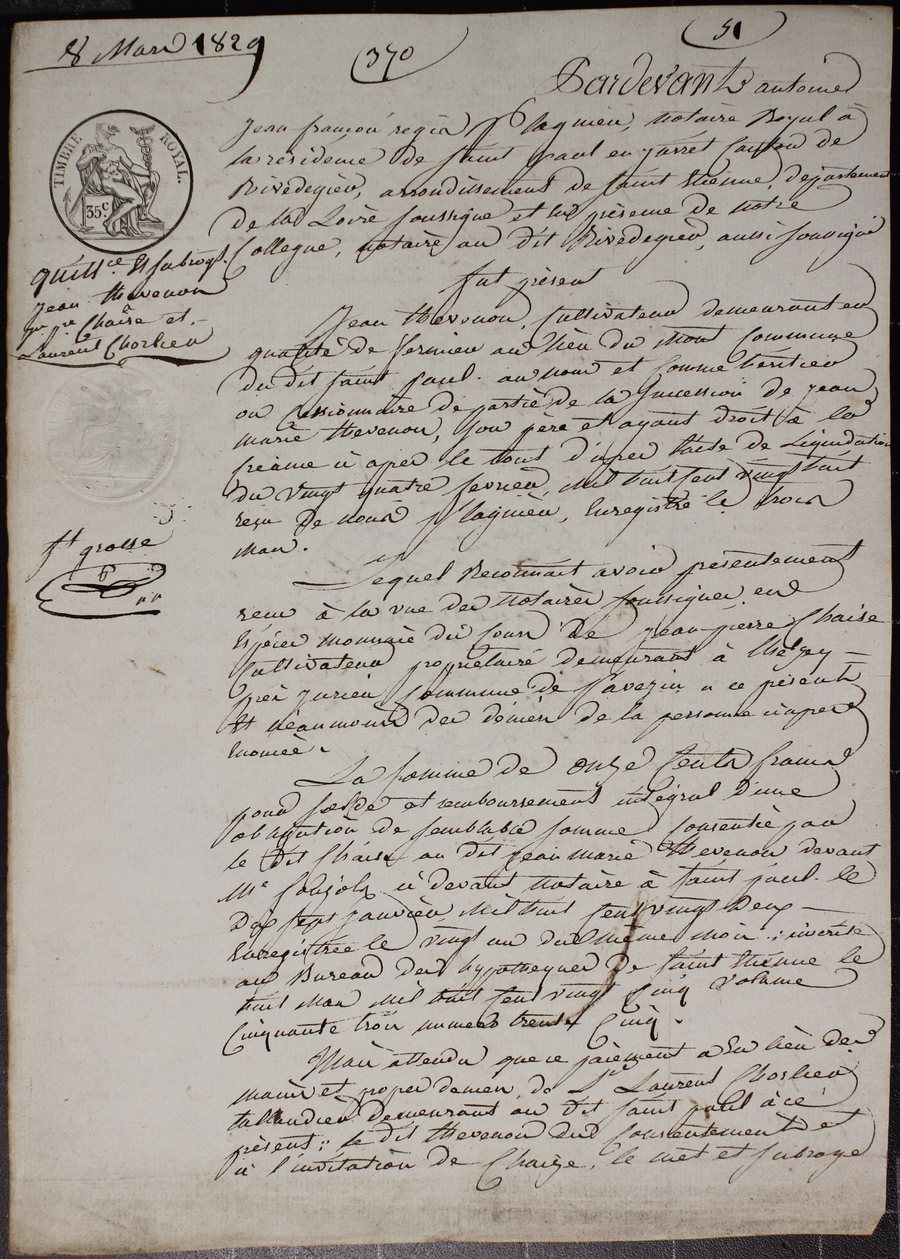 8 Mars 1829
(370)
(51)
Pardevant antoine
Jean françois regis lagnier, notaire Royal à
la résidence de saint paul en jarret canton de
Rivedegier, arrondissement de saint Etienne, département
de la Loire soussigné et en présence de notre
Collegue, notaire au dit Rivedegier, aussi soussigné
TIMBRE ROYAL.
35 c
quittce et subrogt.
Jean thevenon
pr Chaise et
Laurent Chorlieu
fut présent
Jean thevenon, Cultivateur demeurant en
qualité de fermier au lieu du mont Commune
du dit saint paul. au nom et comme héritier
ou Cessionnaire de partie de la succession de jean
marie thevenon, son père et ayant droit à la
créance ci après le tout d'après l'acte de Liquidation
du vingt quatre fevrier, mil huit cent vingt huit
reçu de nous lagnier, Enregistré le trois
mars.
ft grosse
Lequel Reconnait avoir présentement
reçu à la vue des notaires soussignés en
Espèces monnaie du Cours de jean-pierre Chaise
Cultivateur propriétaire demeurant à
près jurieu Commune de Pavezin à ce présent
Et néanmoins des deniers de la personne ci après
Enoncée.
La somme de onze Cents francs
pour solde et remboursement intégral d'une
obligation de semblable somme Consentie par
le dit Chaise au dit jean marie thevenon devant
Me ci devant notaire à saint paul. le
Dix sept janvier, mil huit cent vingt deux
Enregistrée le vingt un du même mois; inscrite
au Bureau des hypotheques de saint Etienne le
huit mars mil huit cent vingt Cinq volume
Cinquante trois numero trente Cinq.
Mais attendu que ce paiement a Eu lieu des
mains et propres deniers de Sr Laurent Chorlieu
taillandier demeurant au dit saint paul à ce
présent; le dit thevenon du Consentement et
à l'invitation de Chaize, le met et subroge